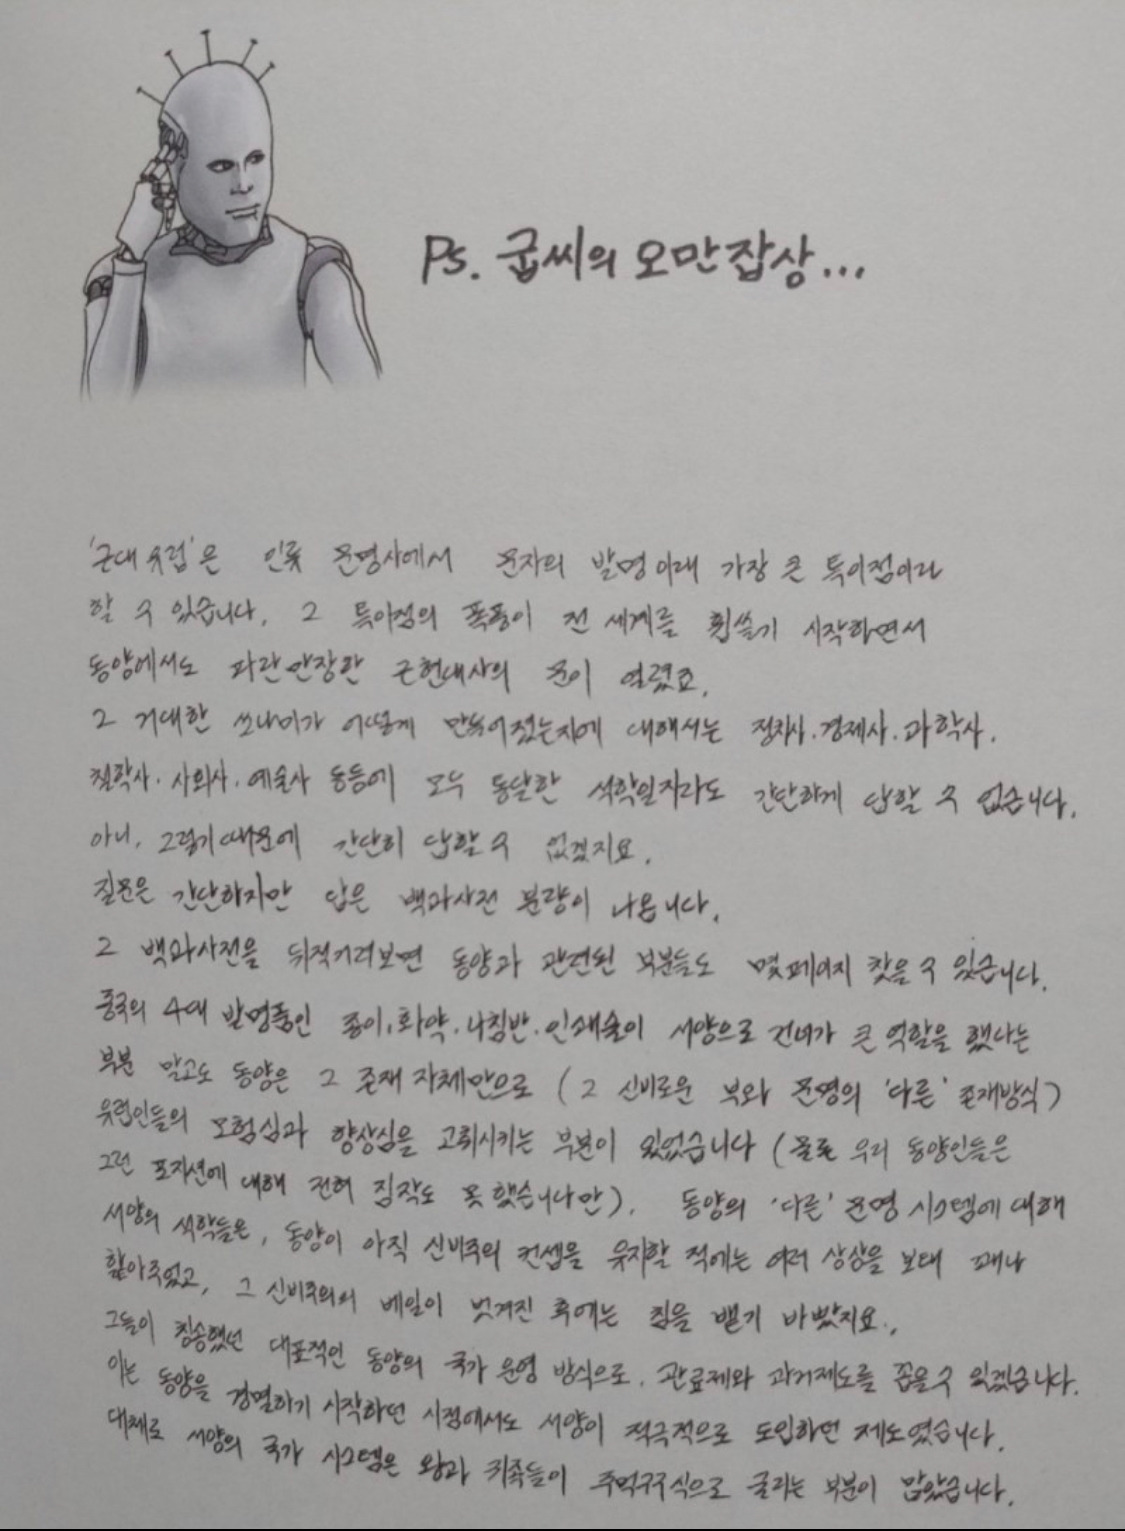 Ps. 굽씨의 오만잡상...
'근대 유럽'은 인류 문명사에서 문자의 발명 이래 가장 큰 특이점이라
할 수 있습니다. 그 특이점의 폭풍이 전 세계를 휩쓸기 시작하면서
동양에서도 파란만장한 근현대사의 문이 열렸죠.
그 거대한 쓰나미가 어떻게 만들어졌는지에 대해서는 정치사·경제사·과학사·
철학사·사회사·예술사 등등에 모두 통달한 석학일지라도 간단하게 답할 수 없습니다.
아니, 그렇기 때문에 간단히 답할 수 없겠지요.
질문은 간단하지만 답은 백과사전 분량이 나옵니다.
그 백과사전을 뒤적거려보면 동양과 관련된 부분들도 몇 페이지 찾을 수 있습니다.
중국의 4대 발명품인 종이·화약·나침반·인쇄술이 서양으로 건너가 큰 역할을 했다는
부분 말고도 동양은 그 존재 자체만으로 (그 신비로운 부와 문명의 '다른' 존재방식)
유럽인들의 모험심과 향상심을 고취시키는 부분이 있었습니다 (물론 우리 동양인들은
그런 포지션에 대해 전혀 짐작도 못 했습니다만). 동양의 '다른' 문명 시스템에 대해
서양의 석학들은, 동양이 아직 신비주의 컨셉을 유지할 적에는 여러 상상을 보태 꽤나
핥아주었고, 그 신비주의의 베일이 벗겨진 후에는 침을 뱉기 바빴지요.,
그들이 칭송했던 대표적인 동양의 국가 운영 방식으로, 관료제와 과거제도를 꼽을 수 있겠습니다.
이는 동양을 경멸하기 시작하던 시점에서도 서양이 적극적으로 도입하던 제도였습니다.
대체로 서양의 국가 시스템은 왕과 귀족들이 주먹구구식으로 굴리는 부분이 많았습니다.